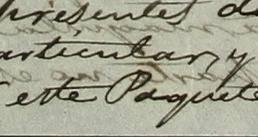 presentes de
articular, y
este Paquete